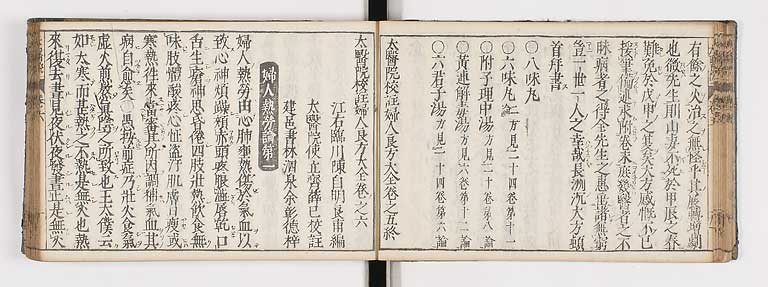 有餘之火治之無怪乎其屢發增劇
也微先生則山妻不死於甲辰之春
難免於戊申之夏矣大方感慨不已
接筆備述求附卷末庶幾醫者之不
昧病者之得全先生之惠豈惟無窮
豈一世一人之幸哉長洲沈大方頓
首拜書
〇八味丸
〇六味丸 二方見二十四卷第十一
〇附子理中湯 方見二十卷第八論
〇黄連解毒湯 方見六卷第十二論
〇六君子湯 方見二十四卷第六論
太醫院校註婦人良方大全卷之五終
太醫院校註婦人良方大全卷之六
江右臨川陳自明良甫編
太醫院使立齋薛已校註
建邑書林泗泉余彰德梓
婦人熱勞論第一
婦人熱勞由心肺壅熱傷於氣血以
致心神煩躁頰赤頭疼眼澁唇乾口
舌生瘡神思昏倦四肢壯熱飲食無
味肢體酸疼心怔盗汗肌膚日瘦或
寒熱徃來當審其所因調補氣血其
病自愈矣〇愚按前症乃壯火食氣
虚火煎熬氣陰勞之所致也王太僕云
如大寒而甚熱之不熱是無火也熱
來復去晝見夜伏夜發晝止是無火